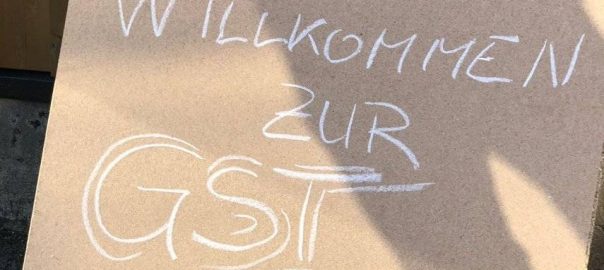 WILLKOMMEN
ZUR
GST